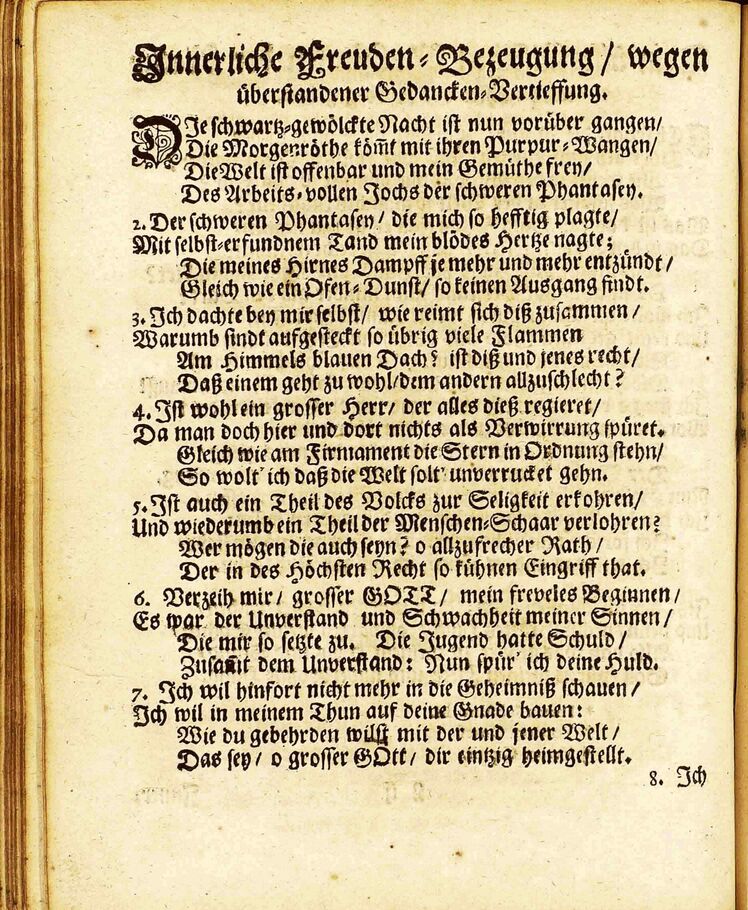 Innerliche Freuden-Bezeugung/ wegen
überstandener Gedancken-Vertieffung.
DIe schwartz-gewölckte Nacht ist nun vorüber gangen/
Die Morgenröthe köm̃t mit ihren Purpur-Wangen/
Die Welt ist offenbar und mein Gemüthe frey/
Des Arbeits-vollen Jochs der schweren Phantasey.
2. Der schweren Phantasey/ die mich so hefftig plagte/
Mit selbst-erfundnem Tand mein blödes Hertze nagte;
Die meines Hirnes Dampff je mehr und mehr entzündt/
Gleich wie ein Ofen-Dunst/ so keinen Ausgang findt.
3. Ich dachte bey mir selbst/ wie reimt sich diß zusammen/
Warumb sindt aufgesteckt so übrig viele Flammen
Am Himmels blauen Dach? ist diß und jenes recht/
Daß einem geht zu wohl/dem andern allzuschlecht?
4. Ist wohl ein grosser Herr/ der alles dieß regieret/
Da man doch hier und dort nichts als Verwirrung spüret.
Gleich wie am Firmament die Stern in Ordnung stehn/
So wolt' ich daß die Welt solt' unverrucket gehn.
5. Ist auch ein Theil des Volcks zur Seligkeit erkohren/
Und wiederumb ein Theil der Menschen-Schaar verlohren?
Wer mögen die auch seyn? o allzufrecher Rath/
Der in des Höchsten Recht so kühnen Eingriff that.
6. Verzeih mir/ grosser GOTT/ mein freveles Beginnen/
Es war der Unverstand und Schwachheit meiner Sinnen/
Die mir so setzte zu. Die Jugend hatte Schuld/
Zusamt dem Unverstand: Nun spür' ich deine Huld.
7. Ich wil hinfort nicht mehr in die Geheimniß schauen/
Ich wil in meinem Thun auf deine Gnade bauen:
Wie du gebehrden willst mit der und jener Welt/
Das sey/ o grosser GOtt/ dir eintzig heimgestellt.
8. Ich